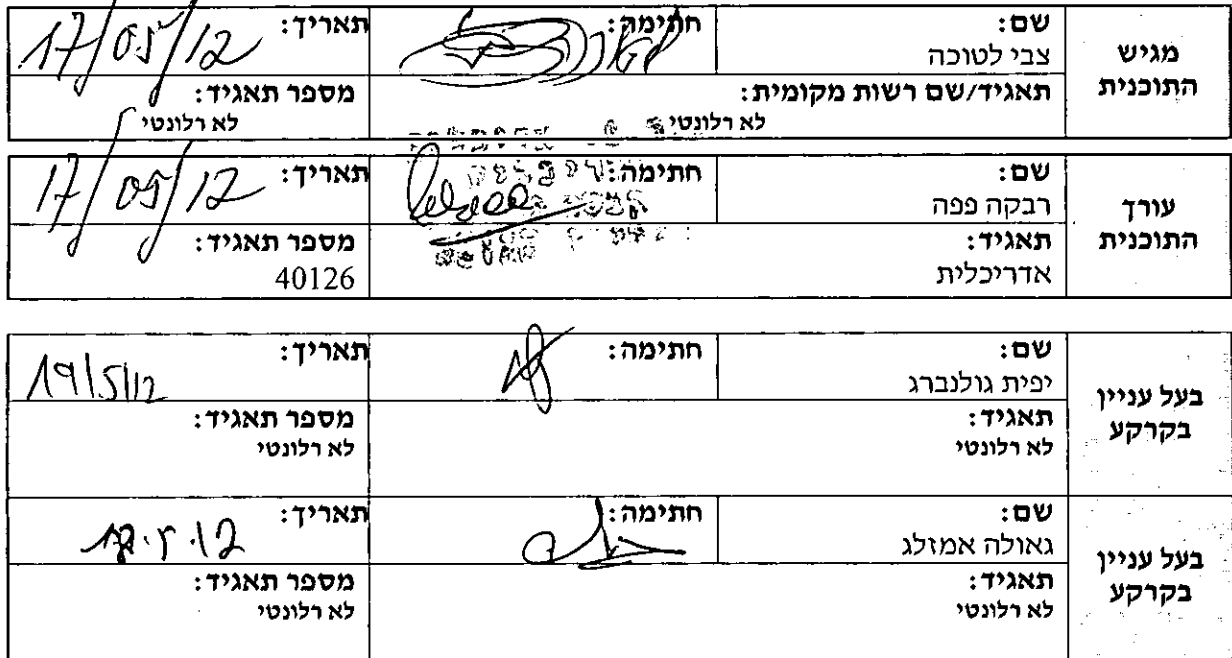 מגיש התוכנית
שם: צבי לטוכה
חתימה:
תאריך: 17/05/12
תאגיד/שם רשות מקומית: לא רלונטי
מספר תאגיד: לא רלונטי
עורך התוכנית
שם: רבקה פפה
חתימה:
תאריך: 17/05/12
תאגיד: אדריכלית
מספר תאגיד: 40126
בעל עניין בקרקע
שם: יפית גולנברג
חתימה:
תאריך: 19/5/12
תאגיד: לא רלונטי
מספר תאגיד: לא רלונטי
בעל עניין בקרקע
שם: גאולה אמזלג
חתימה:
תאריך:
תאגיד: לא רלונטי
מספר תאגיד: לא רלונטי